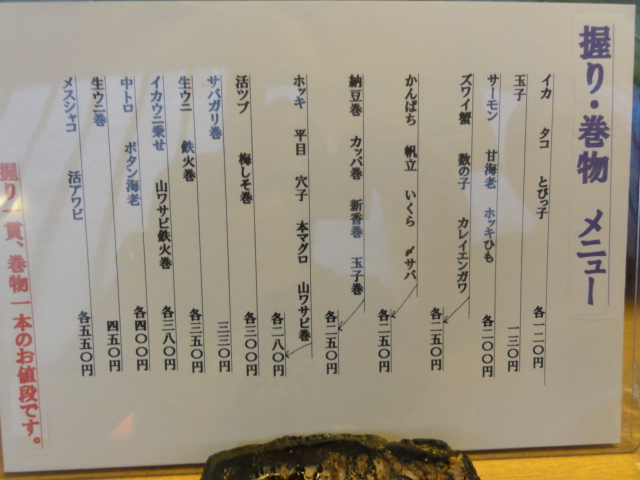 握り・巻物　メニュー
イカ　タコ　とびっ子　各一二〇円
玉子　一三〇円
サーモン　甘海老　ホッキひも　各二〇〇円
ズワイ蟹　数の子　カレイエンガワ　各二五〇円
かんぱち　帆立　いくら　〆サバ　各二五〇円
納豆巻　カッパ巻　新香巻　玉子巻　各二五〇円
ホッキ　平目　穴子　本マグロ　山ワサビ巻　各二八〇円
活ツブ　梅しそ巻　各三〇〇円
サバガリ巻　三三〇円
生ウニ　鉄火巻　各三五〇円
イカウニ乗せ　山ワサビ鉄火巻　各三八〇円
中トロ　ボタン海老　各四〇〇円
生ウニ巻　四五〇円
メスシャコ　活アワビ　各五五〇円
握り一貫、巻物一本のお値段です。